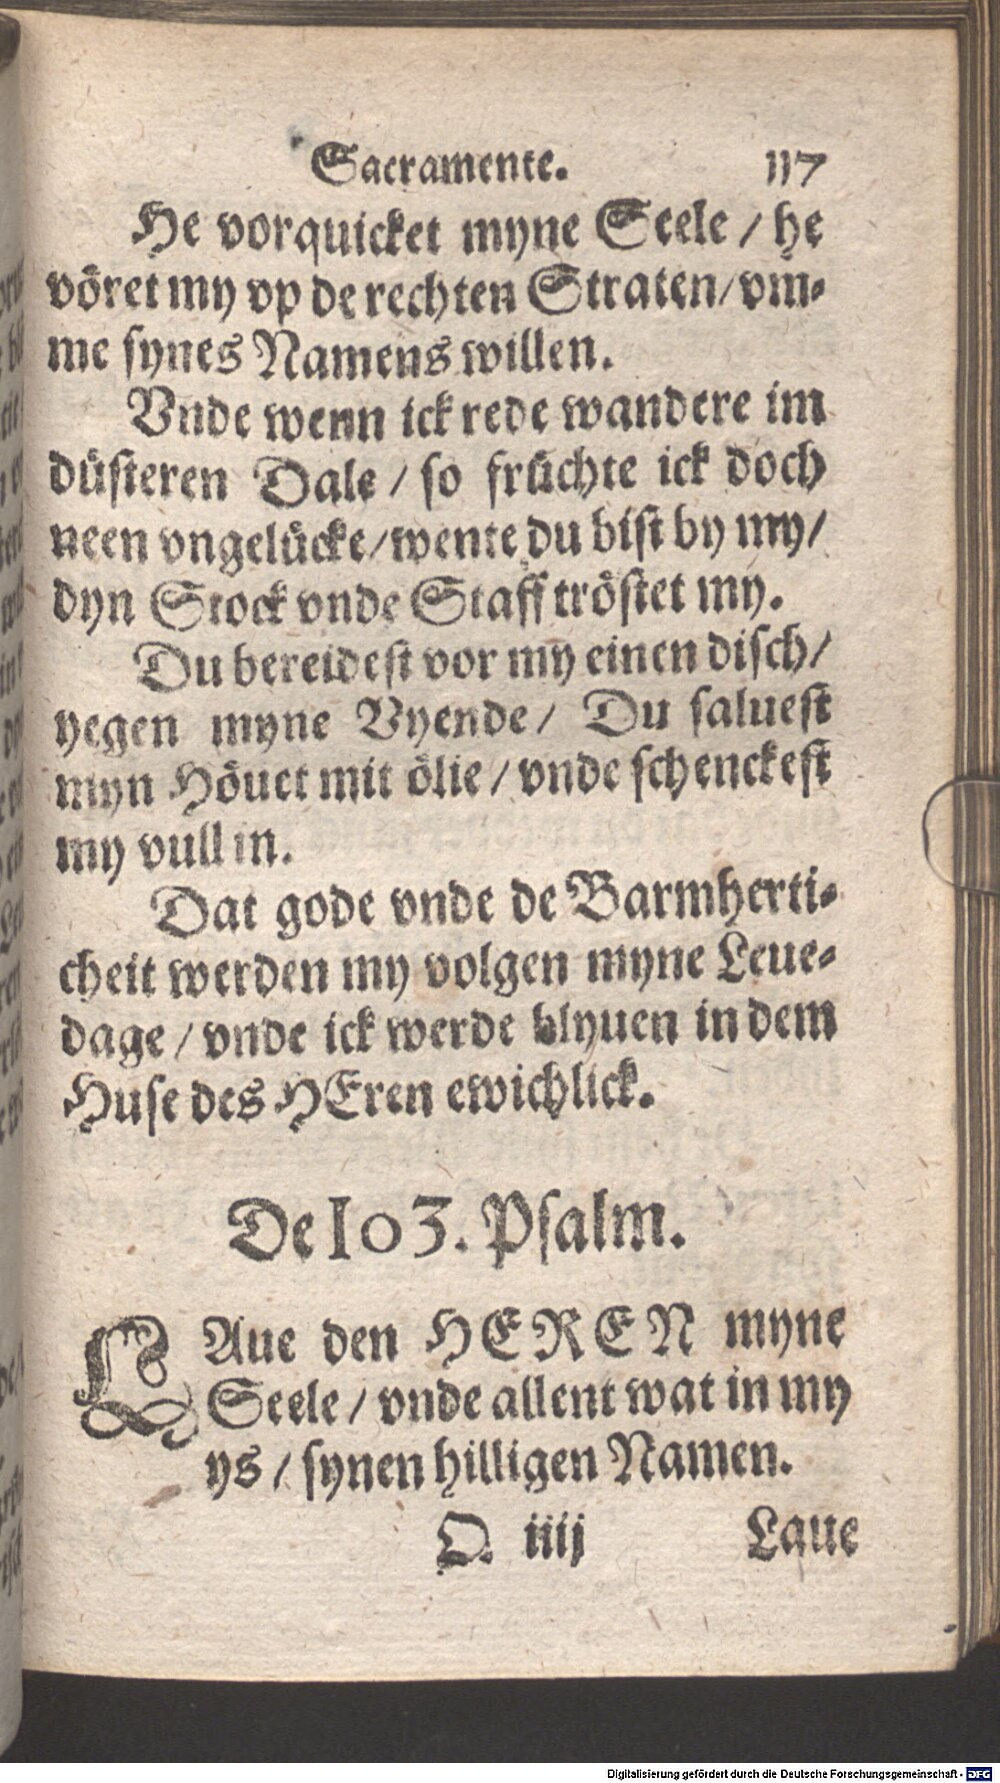 Sacramente. 117
He vorquicket myne Seele / he
vöret my vp de rechten Straten / vm-
me synes Namens willen.
Vnde wenn ick rede wandere im
düsteren Dale / so früchte ick doch
neen vngelücke / wente du bist by my /
dyn Stock vnde Staff tröstet my.
Du bereidest vor my einen disch /
yegen myne Vyende / Du saluest
myn Höuet mit ölie / vnde schenckest
my vull in.
Dat gode vnde de Barmherti-
cheit werden my volgen myne Leue-
dage / vnde ick werde blyuen in dem
Huse des HEren ewichlick.
De 103. Psalm.
LAue den HEREN myne
Seele / vnde allent wat in my
ys / synen hilligen Namen.
O. iiij Laue
Digitalisierung gefördert durch die Deutsche Forschungsgemeinschaft - DFG